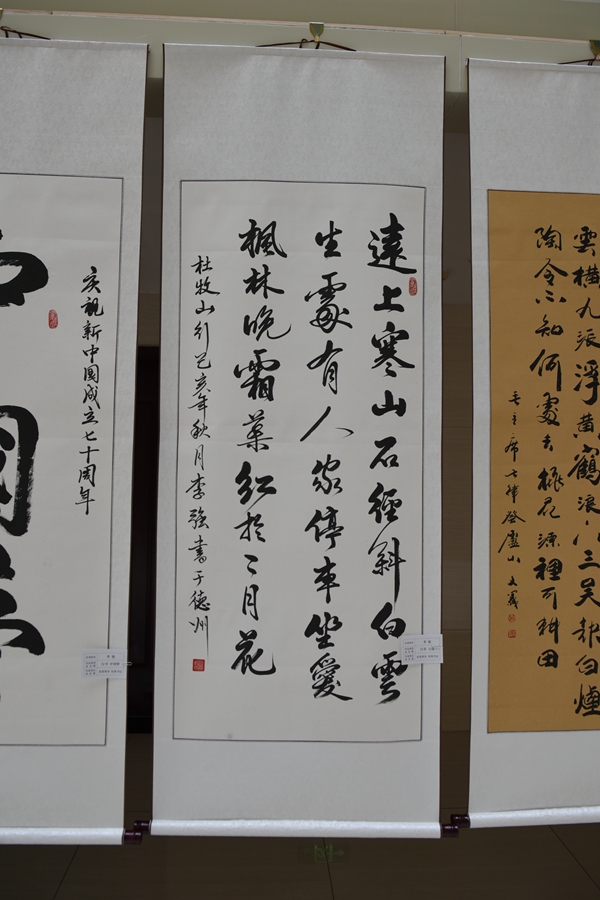 雲橫九派浮黄鶴浪下三吴起白煙
陶令不知何處去桃花源裡可耕田
毛主席七律登廬山
遠上寒山石徑斜白雲
生處有人家停車坐愛
楓林晚霜葉紅於二月花
杜牧山行己亥年秋月李强書于德州
國
庆祝新中国成立七十周年